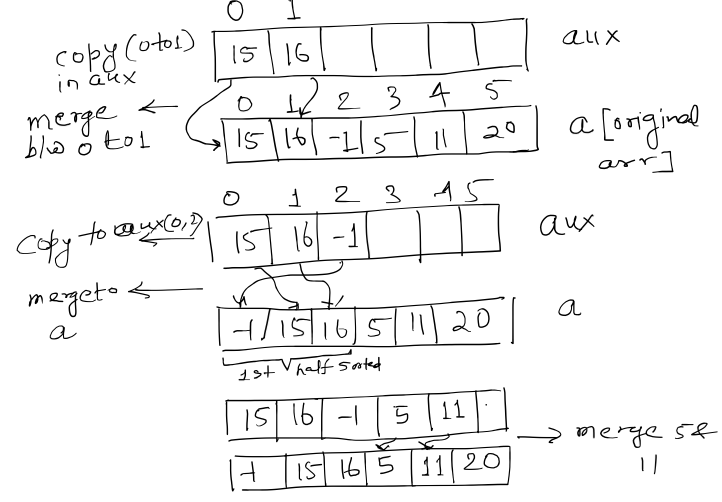 0 1
copy (0 to 1)
in aux
15 16
aux
merge
b/w 0 to 1
0 1 2 3 4 5
15 16 -1 5 11 20
a [original
arr]
0 1 2 3 4 5
Copy to aux(0,2)
15 16 -1
aux
merge to
a
-1 15 16 5 11 20
a
1st half sorted
15 16 -1 5 11
-1 15 16 5 11 20
merge 5 &
11